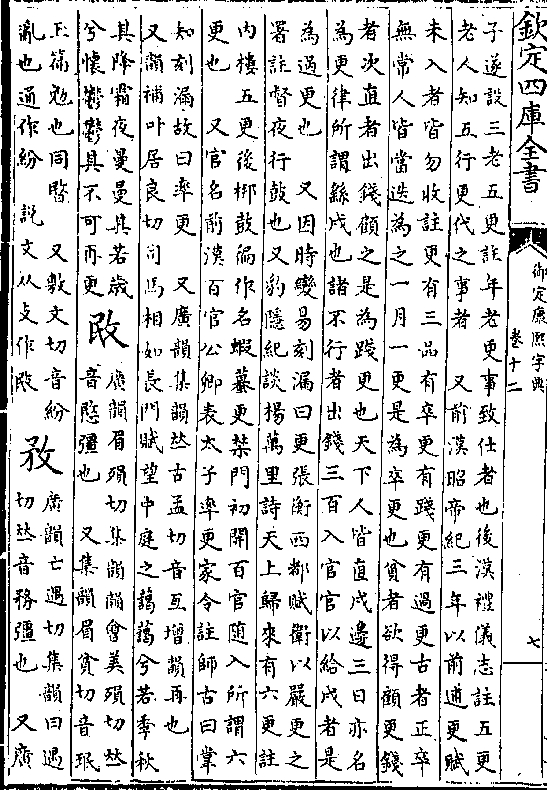 欽定四庫全書
御定康熙字典
卷十二
七
子遂設三老五更註年老更事致仕者也後漢禮儀志註五更
老人知五行更代之事者 又前漢昭帝紀三年以前逋更賦
未入者皆勿收註更有三品有卒更有踐更有過更古者正卒
無常人皆當迭為之一月一更是為卒更也貧者欲得顧更錢
者次直者出錢顧之是為踐更也天下人皆直戍邊三日亦名
為更律所謂繇戍也諸不行者出錢三百入官官以給戍者是
為過更也 又因時變易刻漏曰更張衡西都賦衛以嚴更之
署註督夜行鼓也又豹隱紀談楊萬里詩天上歸來有六更註
内樓五更後梆鼓徧作名蝦蟇更禁門初開百官随入所謂六
更也 又官名前漢百官公卿表太子率更家令註師古曰掌
知刻漏故曰率更 又廣韻集韻𠀤古孟切音亙增韻再也
又韻補叶居良切司馬相如長門賦望中庭之藹藹兮若季秋
其降霜夜曼曼其若歲兮懷鬱鬱其不可再更
敃 廣韻眉殞切集韻韻會美殞切𠀤音愍彊也 又集韻眉貧切音珉
玉篇勉也同暋 又敷文切音紛亂也通作紛 説文从攴作敃
敄 廣韻亡遇切集韻曰遇切𠀤音務彊也 又廣